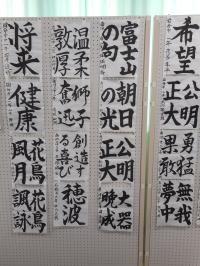 希望
公明
正大
勇猛
果敢
無我
夢中
富士山
の句
朝日
の光
公明
正大
大器
晩成
温柔
敦厚
獅子
奮迅
創造す
る喜び
穂波
将来
健康
花鳥
風月
花鳥
諷詠